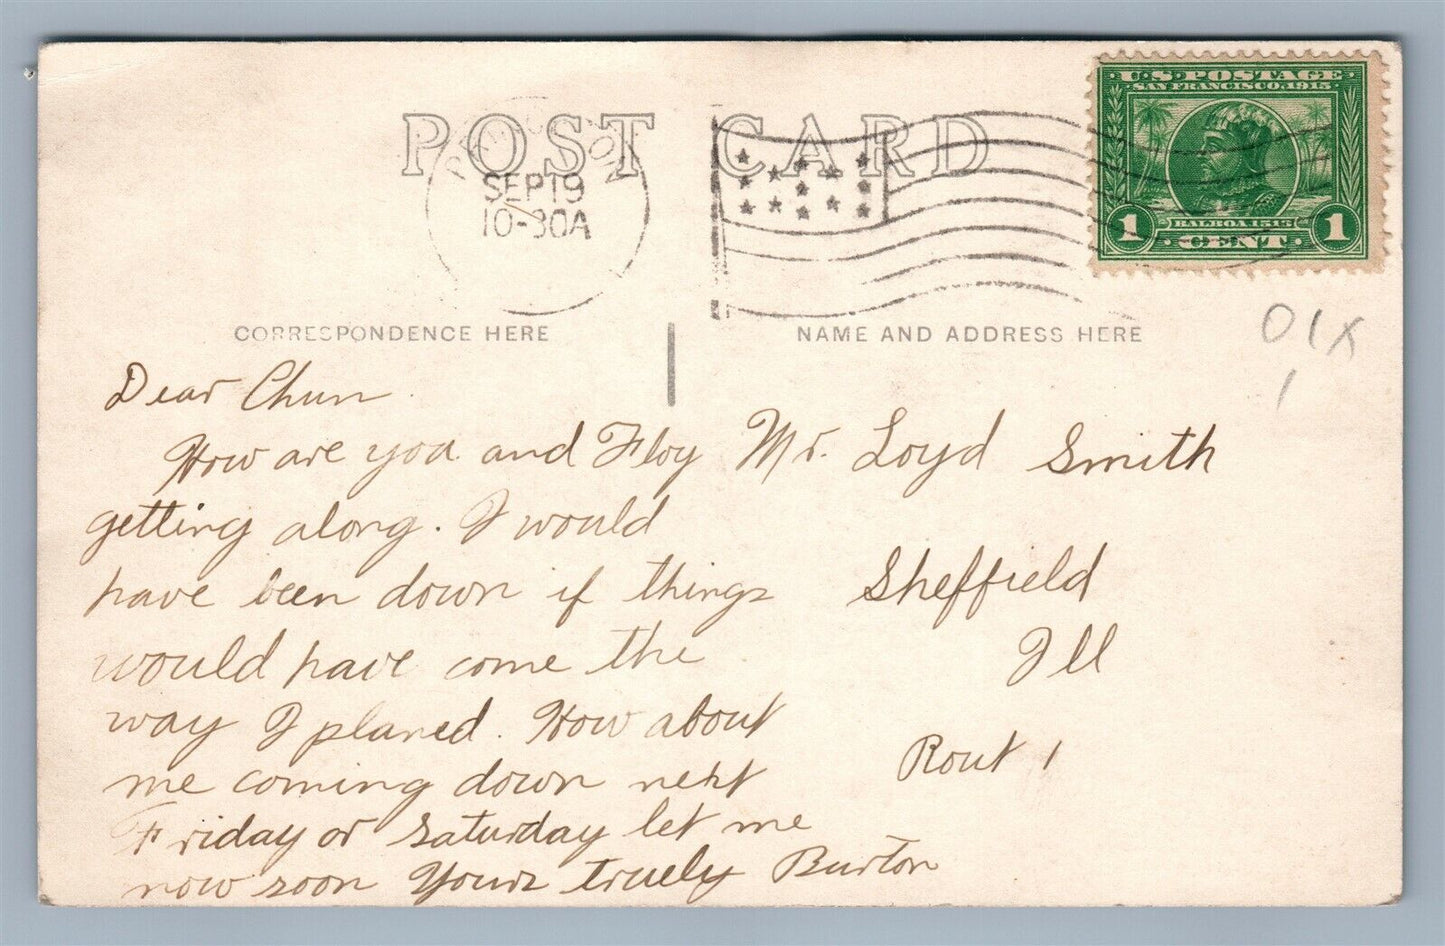 POST CARD
SEP 19
10-30A
U.S. POSTAGE
SAN FRANCISCO, 1915
BALBOA 1513
1 CENT 1
CORRESPONDENCE HERE
NAME AND ADDRESS HERE
01X
1
Dear Chum
How are you and Floy
getting along. I would
have been down if things
would have come the
way I planed. How about
me coming down next
Friday or Saturday let me
now soon Yours truely Burton
Mr. Loyd Smith
Sheffield
Ill
Rout 1